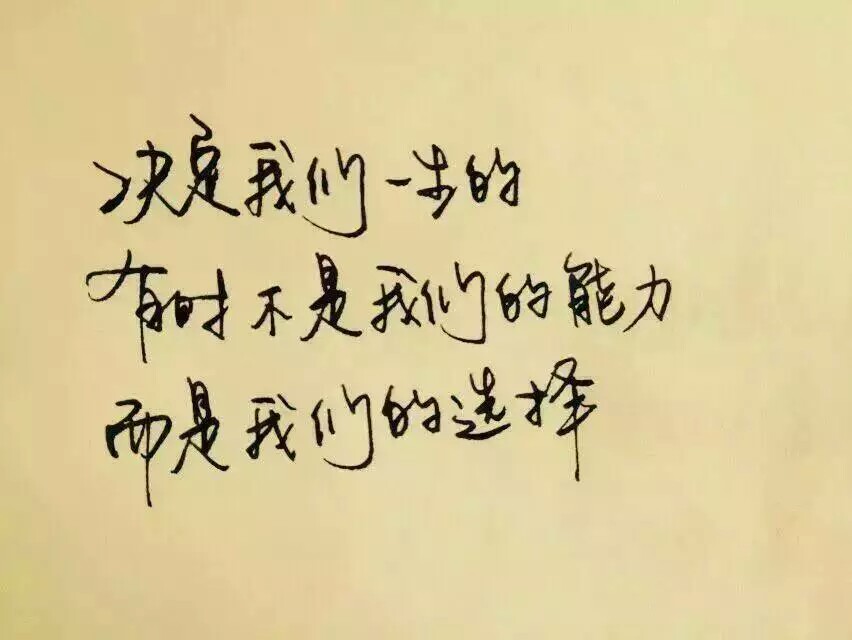 决定我们一生的
有时不是我们的能力
而是我们的选择